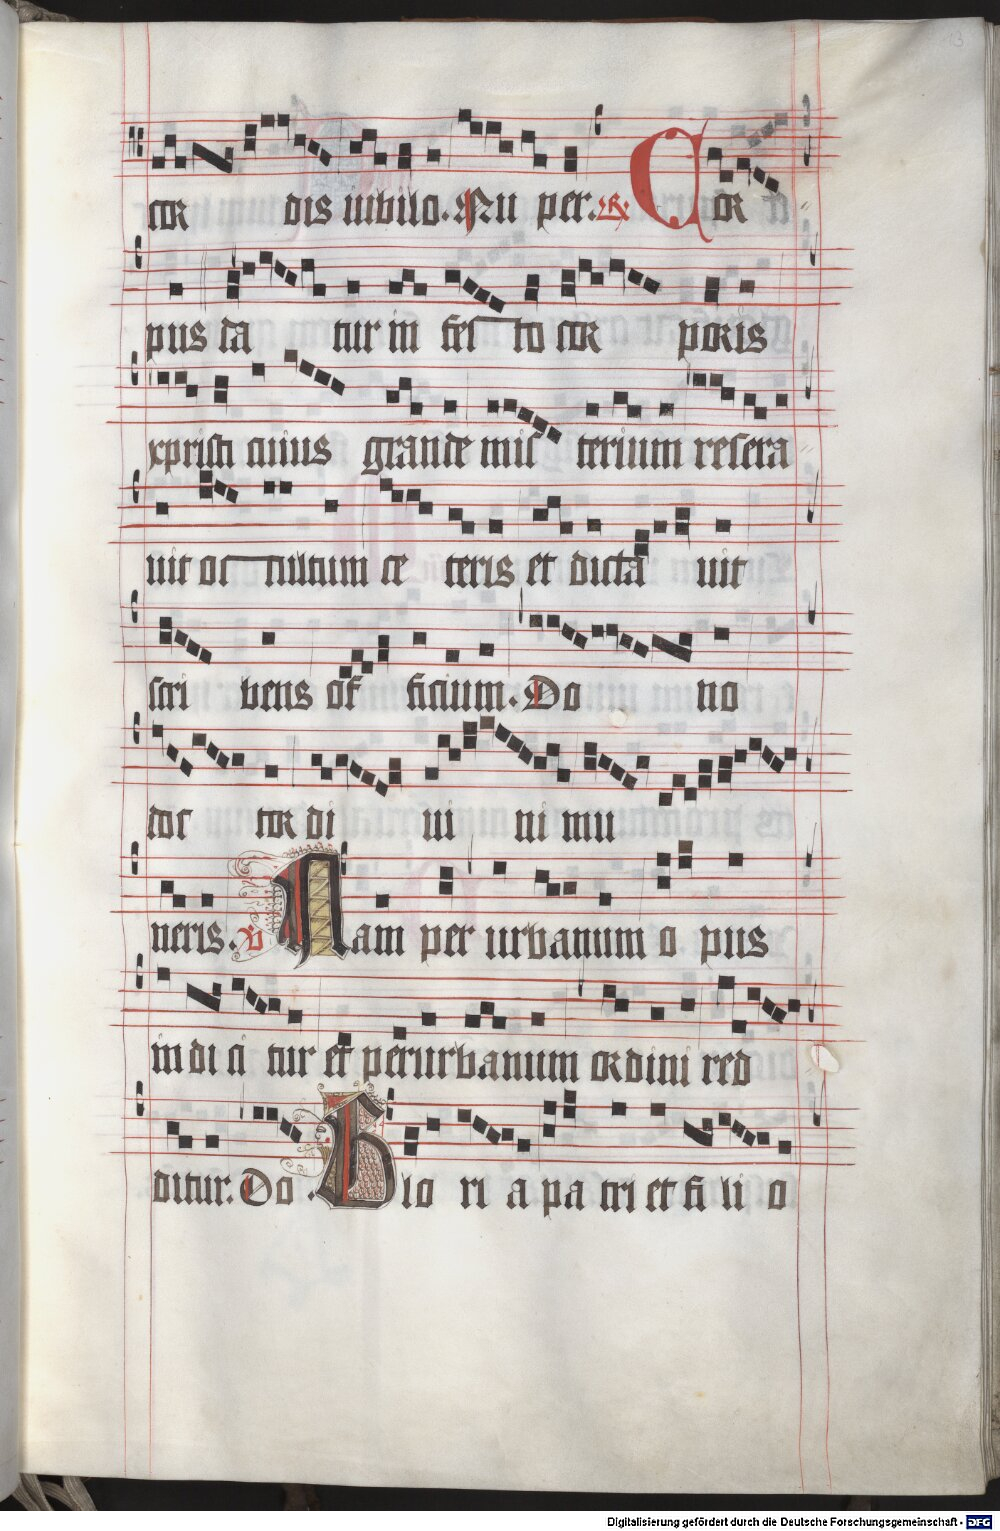 13
cor dis iubilo. Nu per. R. Cor
pus da tur in fes to cor poris
xpristi cuius grande mis terium resera
uit oc cultum ce teris et dicta uit
scri bens of ficium. Do no
doc tor di ui ni mu
neris. V Nam per urbanum o pus
in di ci tur et per urbanum ordini red
ditur. Do. Glo ri a pa tri et fi li o
Digitalisierung gefördert durch die Deutsche Forschungsgemeinschaft - DFG